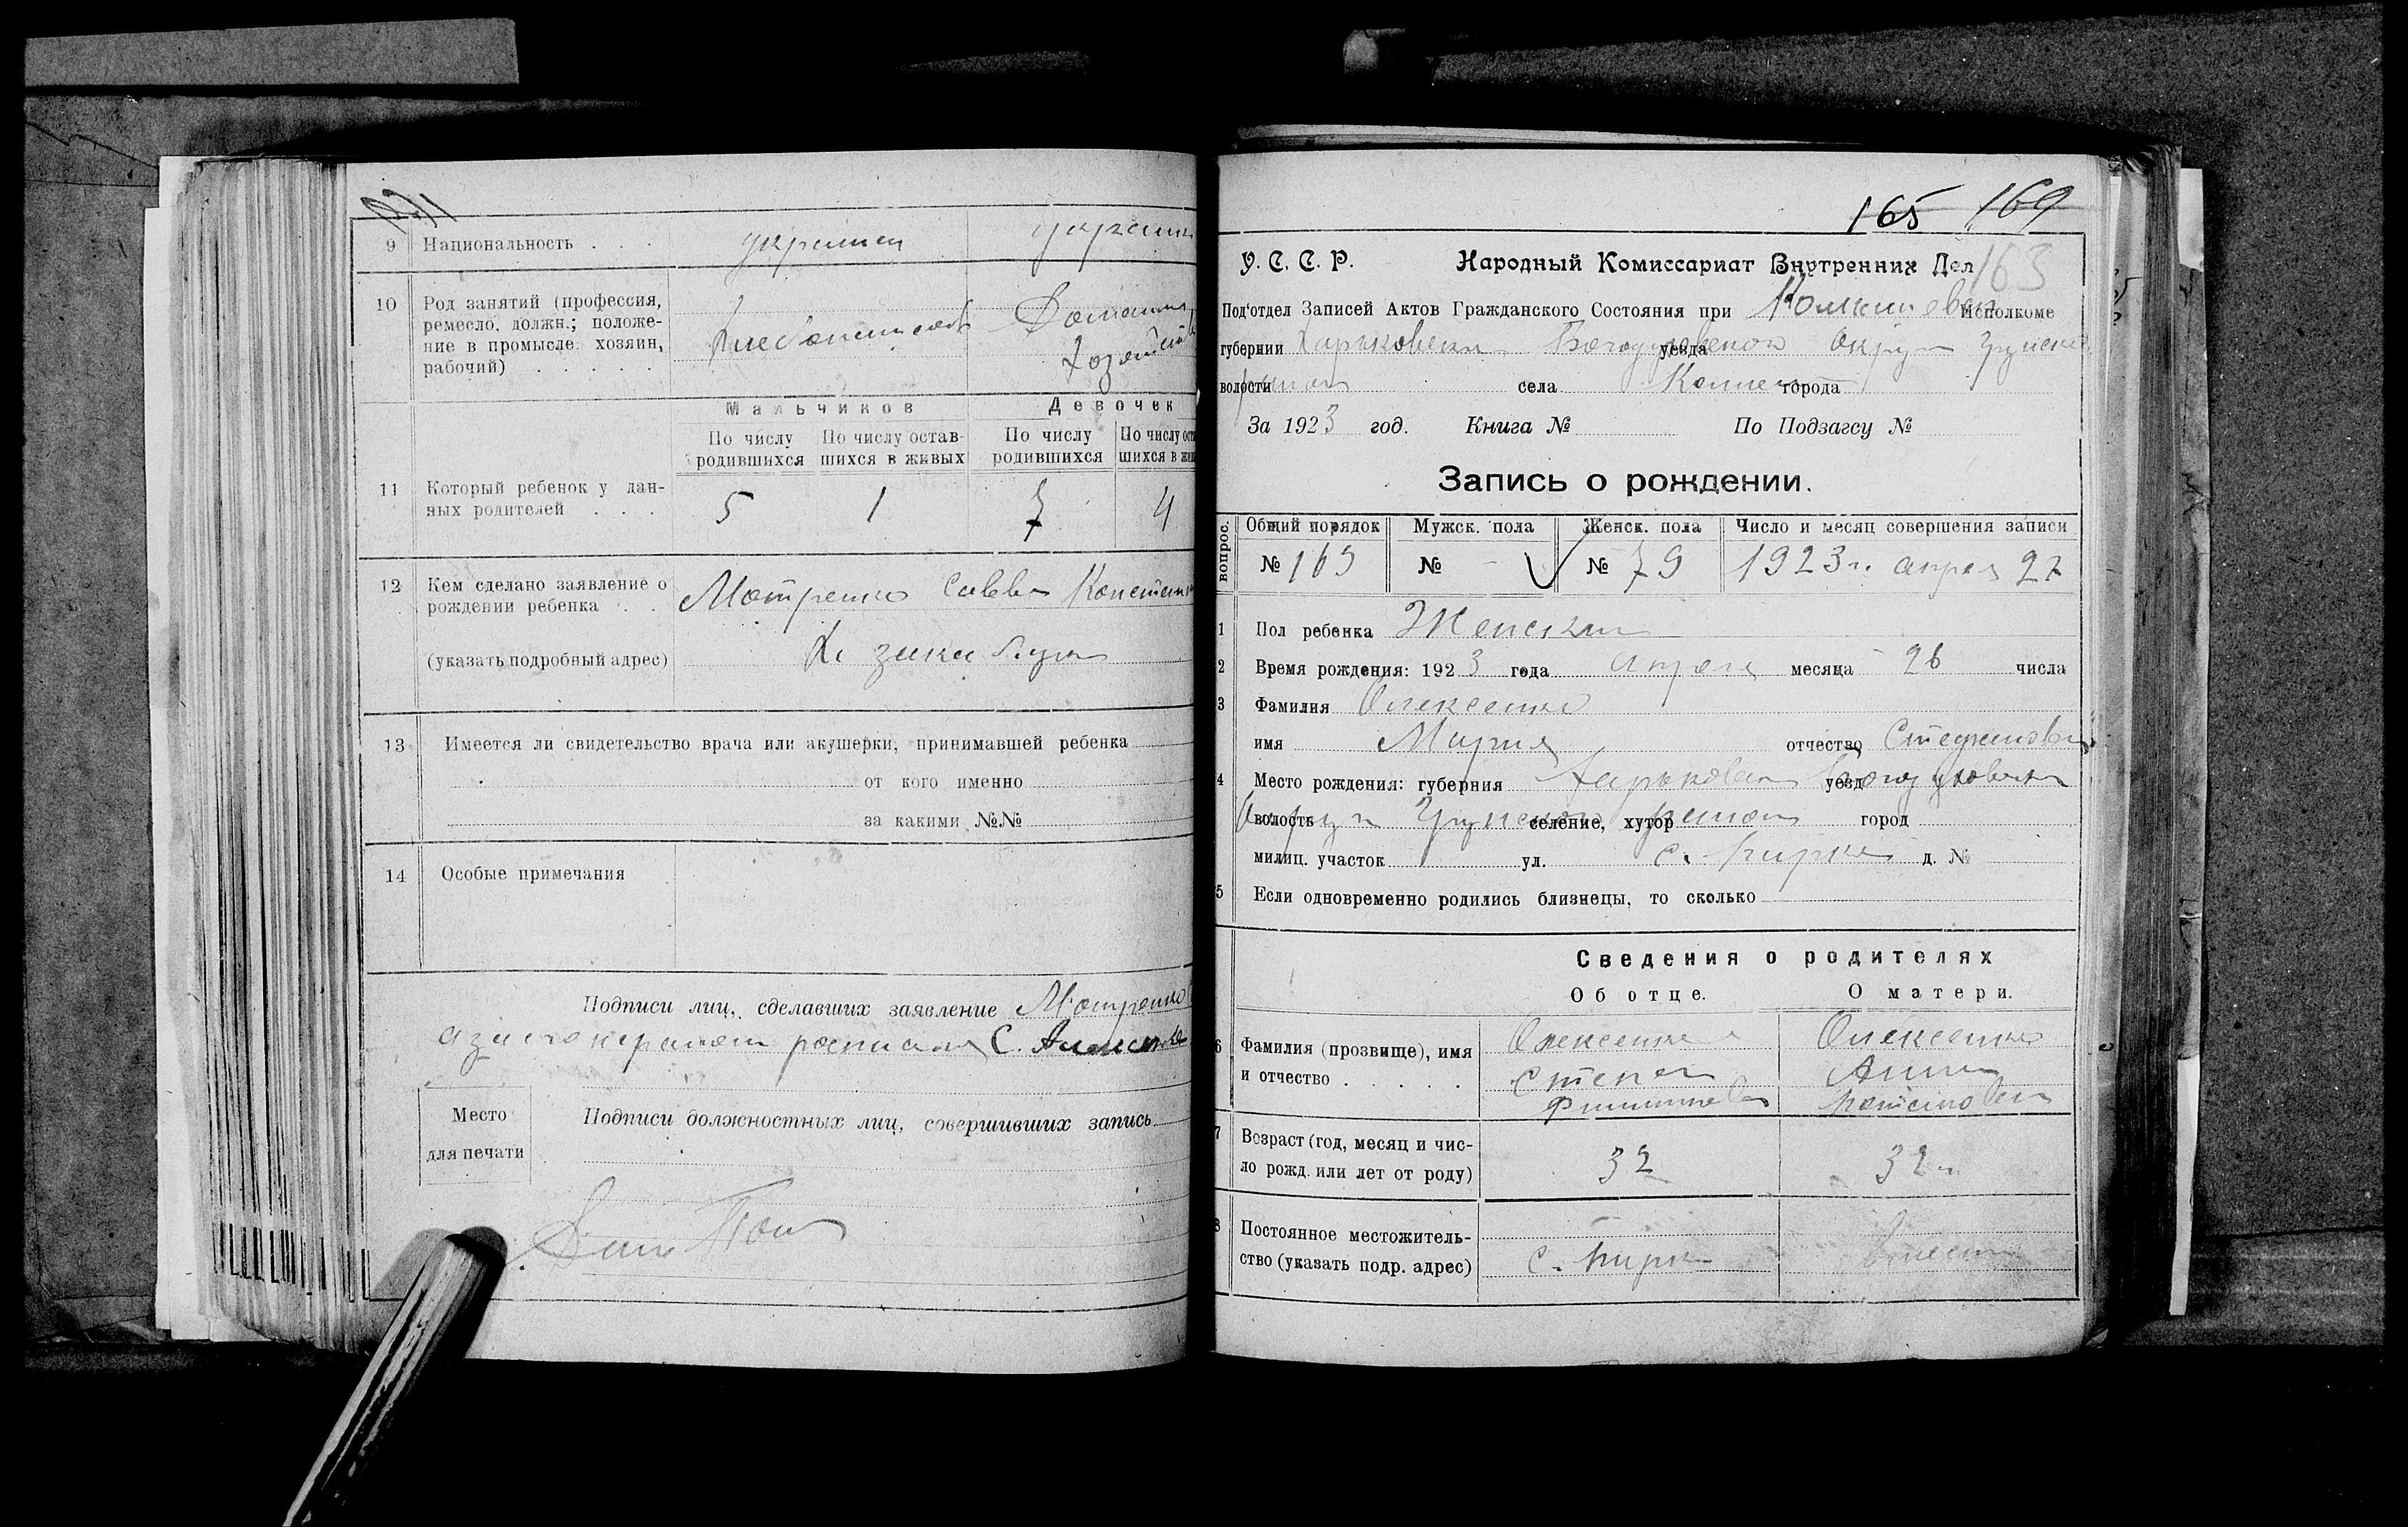 9 Национальность . . . украинец украин
10 Род занятий (профессия,
ремесло, должн.; положе-
ние в промысле: хозяин,
рабочий) . . . . .
Хлебопашество Домашн.
Хозяйств
Мальчиков Девочек
По числу По числу остав- По числу По числу ост
родившихся шихся в живых родившихся шихся в жив
11 Который ребенок у дан-
ных родителей . . .
5 1 7 4
12 Кем сделано заявление о
рождении ребенка . .
Мотренко Савва Констант
(указать подробный адрес)
13 Имеется ли свидетельство врача или акушерки, принимавшей ребенка
от кого именно
за какими №№
14 Особые примечания
Подписи лиц, сделавших заявление Мотренко
а за него неграмотн росписался С.
Место
для печати
Подписи должностных лиц, совершивших запись
165 169
У. С. С. Р. Народный Комиссариат Внутренних Дел 163
Под'отдел Записей Актов Гражданского Состояния при Исполкоме
губернии Харьковской Богодуховской уезда Округ
волости села города
За 1923 год. Книга № По Подзагсу №
Запись о рождении.
вопрос. Общий порядок Мужск. пола Женск. пола Число и месяц совершения записи
№ 169 № - № 79 1923 г. апреля 27
1 Пол ребенка Женский
2 Время рождения: 1923 года Апреля месяца 26 числа
3 Фамилия Олексенко
имя Мария отчество Стефановна
4 Место рождения: губерния Харьковская уезд Богодуховский
волость Округа селение, хутор город
милиц. участок ул. с. Кирки д. №
5 Если одновременно родились близнецы, то сколько
Сведения о родителях
Об отце. О матери.
6 Фамилия (прозвище), имя
и отчество . . . . .
Олексенко Олексенко
Степан Анна
Филиппов
7 Возраст (год, месяц и чис-
ло рожд. или лет от роду)
32 32
8 Постоянное местожитель-
ство (указать подр. адрес)
с. Кирки Вместе